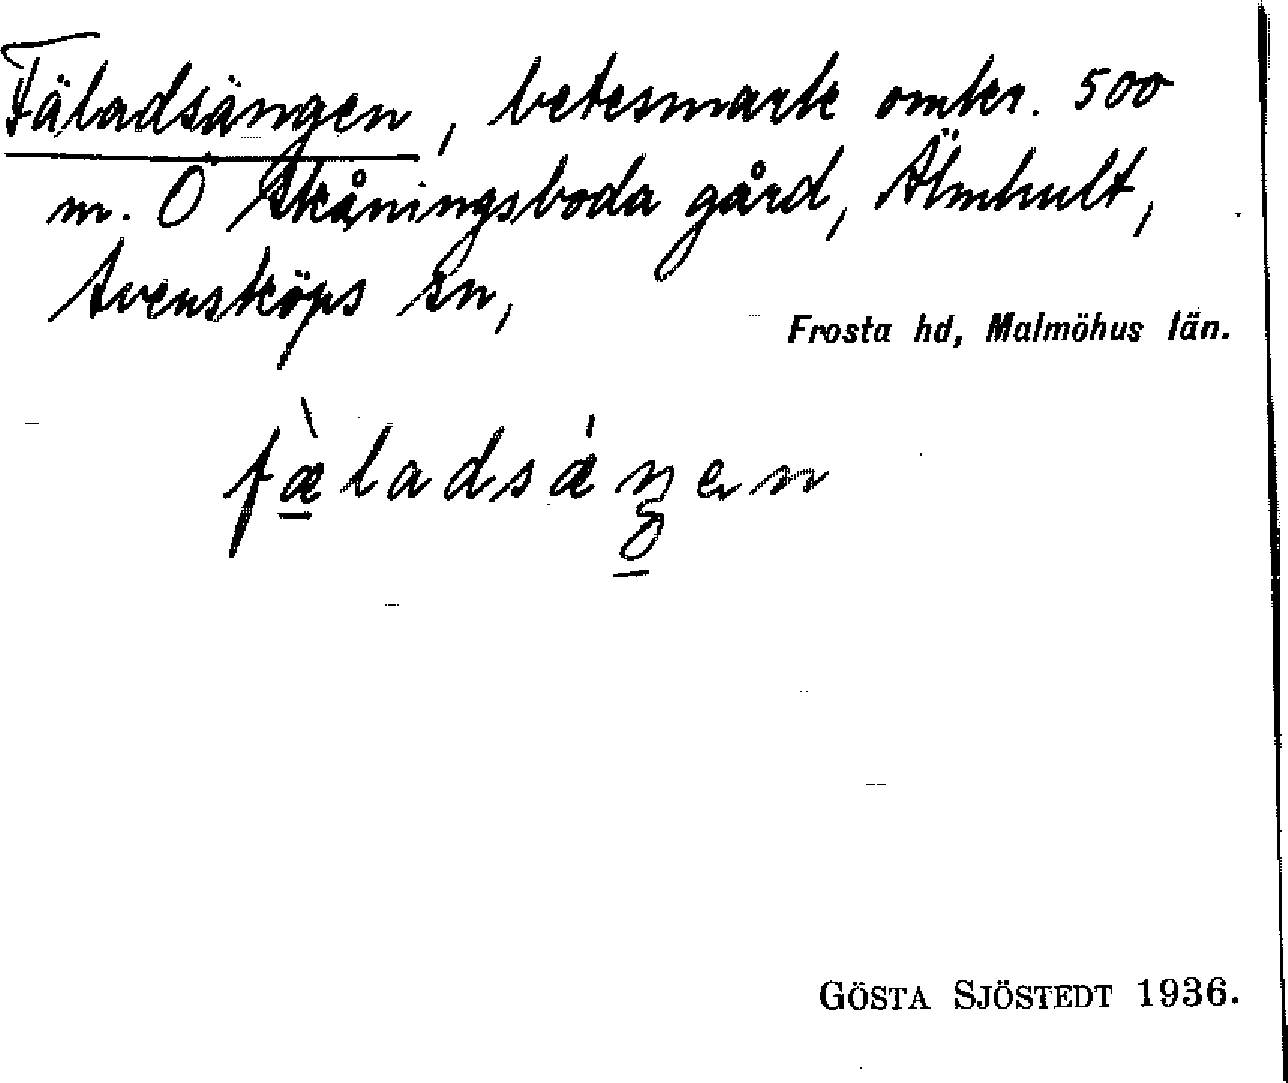 Fäladsängen, betesmark omkr. 500
m. Ö Skåningsboda gård, Älmhult,
Svensköps sn,
Frosta hd, Malmöhus län.
fæ̀ladsǽŋen
GÖSTA SJÖSTEDT 1936.